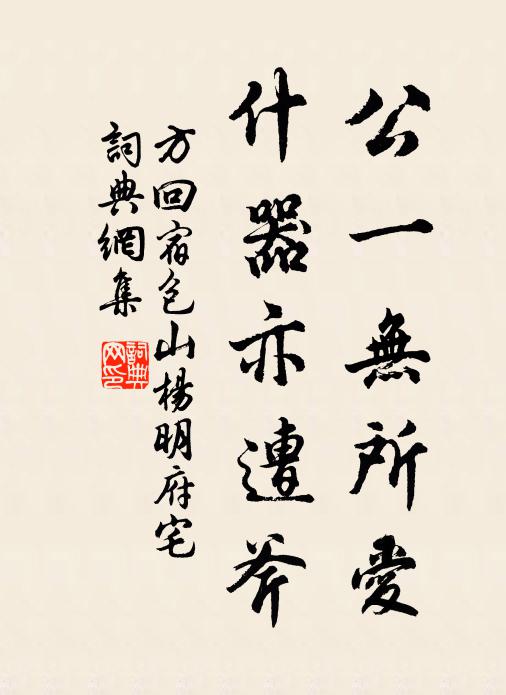 公一無所愛
什器亦遭斧
方回宿包山楊明府宅
詞典網集
詞典網印